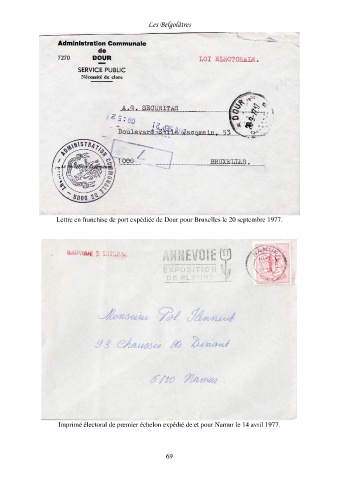 Les Belgolâtres
Administration Communale
de
7270 DOUR
SERVICE PUBLIC
Nécessité de clore
LOI ELECTORALE.
A.G. SECURITAS
DOUR
Boulevard Emile Jacqmain, 53
1000 BRUXELLES.
ADMINISTRATION COMMUNALE DE DOUR
Lettre en franchise de port expédiée de Dour pour Bruxelles le 20 septembre 1977.
ANNEVOIE
EXPOSITION
DE FLEURS
NAMUR
1F
Monsieur Pol
93 Chaussée de Dinant
Namur
Imprimé électoral de premier échelon expédié de et pour Namur le 14 avril 1977.
69